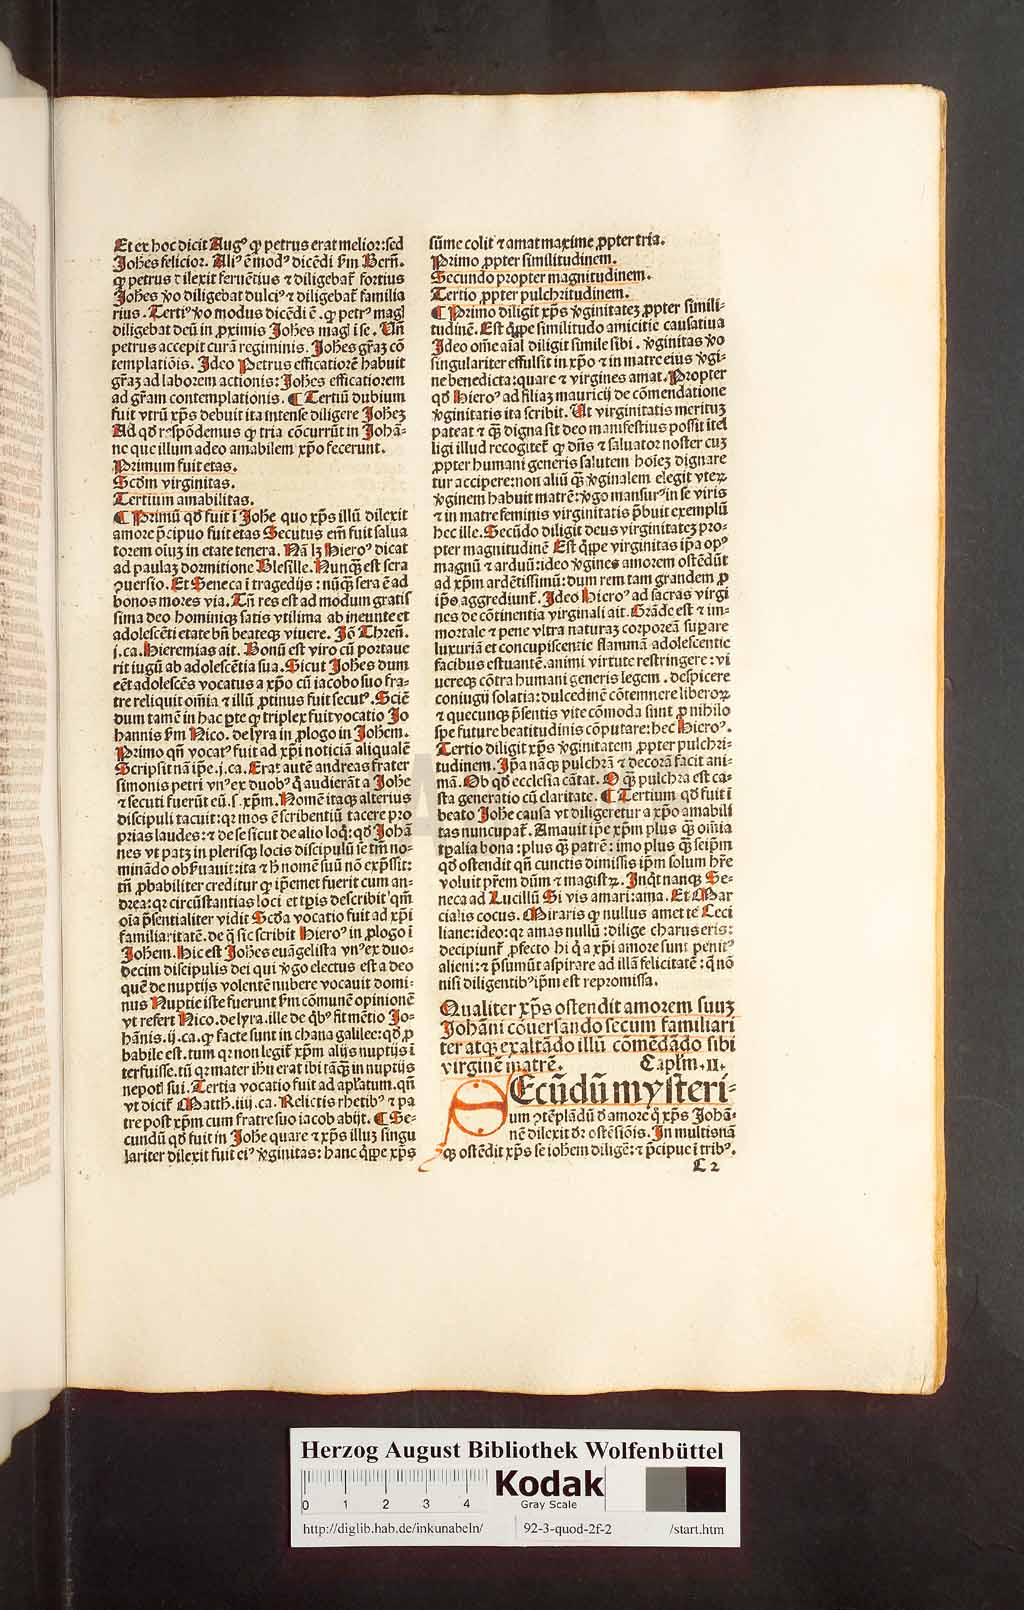 Et ex hoc dicit Augꝰ ꝙ petrus erat melior: sed
Johẽs felicior. Aliꝰ ẽ modꝰ dicẽdi ẜm Berñ.
ꝙ petrus dilexit feruẽtius ⁊ diligebat̃ fortius
Johẽs ꝟo diligebat dulciꝰ ⁊ diligebat̃ familia
rius. Tertiꝰ ꝟo modus dicẽdi ẽ. ꝙ petrꝰ magꝭ
diligebat deũ in ꝓximis Johẽs magꝭ ĩ se. Vñ
petrus accepit curã regiminis. Johẽs gr̃az cõ
templatiõis. Ideo Petrus efficatiorẽ habuit
gr̃az ad laborem actionis: Johẽs efficatiorem
ad gr̃am contemplationis. ¶ Tertiũ dubium
fuit vtrũ xp̃s debuit ita intense diligere Johẽꝫ
Ad qd̃ respõdemus ꝙ tria cõcurrũt in Johã-
ne que illum adeo amabilem xp̃o fecerunt.
Primum fuit etas.
Scd̃m virginitas.
Tertium amabilitas.
¶ Primũ qd̃ fuit ĩ Johẽ quo xp̃s illũ dilexit
amore p̃cipuo fuit etas Secutus em̃ fuit salua
torem oĩuꝫ in etate tenera. Nã lꝫ Hieroꝰ dicat
ad paulaꝫ dormitione Blesille. Nunqꝫ̃ est sera
ꝯuersio. Et Seneca ĩ tragedijs: nũqꝫ̃ sera ẽ ad
bonos mores via. Tñ res est ad modum gratis
sima deo hominiqꝫ satis vtilima ab ineunte et
adolescẽti etate bñ beateqꝫ viuere. Jõ Threñ.
j. ca. Hieremias ait. Bonũ est viro cũ portaue
rit iugũ ab adolescẽtia sua. Sicut Johẽs dum
eẽt adolescẽs vocatus a xp̃o cũ iacobo suo fra-
tre reliquit om̃ia ⁊ illũ ꝓtinus fuit secutꝰ. Sciẽ
dum tamẽ in hac ꝑte ꝙ triplex fuit vocatio Jo
hannis ẜm Nico. de lyra in ꝓlogo in Johẽm.
Primo qñ vocatꝰ fuit ad xp̃i noticiã aliqualẽ
Scripsit nã ip̃e. j. ca. Erat autẽ andreas frater
simonis petri vnꝰ ex duobꝰ q̃ audierãt a Johẽ
⁊ secuti fuerũt eũ. s. xp̃m. Nomẽ itaqꝫ alterius
discipuli tacuit: qꝛ mos ẽ scribentiũ tacere pro
prias laudes: ⁊ de se sicut de alio loqͥ: qd̃ Johã
nes vt patꝫ in plerisqꝫ locis discipulũ ie tm̃ no-
minãdo obẜuauit: ita ⁊ h̃ nomẽ suũ nõ exp̃ssit:
tñ ꝓbabiliter creditur ꝙ ip̃emet fuerit cum an-
drea: qꝛ circũstantias loci et tp̃is describit q̃m
oĩa p̃sentialiter vidit Scd̃a vocatio fuit ad xp̃i
familiaritatẽ. de q̃ sic scribit Hieroꝰ in ꝓlogo ĩ
Johẽm. Hic est Johẽs euãgelista vnꝰ ex duo-
decim discipulis dei qui ꝟgo electus est a deo
quẽ de nuptijs volentẽ nubere vocauit domi-
nus Nuptie iste fuerunt ẜm cõmunẽ opinionẽ
vt refert Nico. de lyra. ille de qͥbꝰ fit mẽtio Jo-
hãnis. ij. ca. ꝙ facte sunt in chana galilee: qd̃ ꝓ
babile est. tum qꝛ non legit̃ xp̃m alijs nuptijs ĩ
terfuisse. tũ qꝛ mater ihũ erat ibi tãqꝫ in nuptijs
nepotꝭ sui. Tertia vocatio fuit ad apl̃atum. qñ
vt dicit̃ Matth. iiij. ca. Relictis rhetibꝰ ⁊ pa
tre post xp̃m cum fratre suo iacob abijt. ¶ Se-
cundũ qd̃ fuit in Johẽ quare ⁊ xp̃s illuꝫ singu
lariter dilexit fuit eiꝰ ꝟginitas: hanc qͥppe xp̃s
sũme colit ⁊ amat maxime ꝓpter tria.
Primo ꝓpter similitudinem.
Secundo propter magnitudinem.
Tertio ꝓpter pulchritudinem.
¶ Primo diligit xp̃s ꝟginitateꝫ ꝓpter simili-
tudinẽ. Est qͥppe similitudo amicitie causatiua
Ideo om̃e aĩal diligit simile sibi. ꝟginitas ꝟo
singulariter effulsit in xp̃o ⁊ in matre eius ꝟgi-
ne benedicta: quare ⁊ virgines amat. Propter
qd̃ Hieroꝰ ad filiaꝫ mauricij de cõmendatione
ꝟginitatis ita scribit. Ut virginitatis merituꝫ
pateat ⁊ qꝫ̃ digna sit deo manifestius possit itel
ligi illud recogitet̃ ꝙ dñs ⁊ saluator noster cuꝫ
ꝓpter humani generis salutem hoĩeꝫ dignare
tur accipere: non aliũ qꝫ̃ ꝟginalem elegit vteꝝ
ꝟginem habuit matrẽ: ꝟgo mansurꝰ in se viris
⁊ in matre feminis virginitatis p̃buit exemplũ
hec ille. Secũdo diligit deus virginitateꝫ pro-
pter magnitudinẽ Est qͥppe virginitas ip̃a opꝰ
magnũ ⁊ arduũ: ideo ꝟgines amorem ostẽdũt
ad xp̃m ardẽtissimũ: dum rem tam grandem ꝓ
ip̃o aggrediunt̃. Ideo Hieroꝰ ad sacras virgi
nes de cõtinentia virginali ait. Grãde est ⁊ im-
mortale ⁊ pene vltra naturaꝫ corporeã suꝑare
luxuriã et concupiscentie flammã adolescentie
facibus estuantẽ. animi virtute restringere: vi
uereqꝫ cõtra humani generis legem. despicere
coniugij solatia: dulcedinẽ cõtemnere liberoꝝ
⁊ quecunqꝫ p̃sentis vite cõmoda sunt ꝓ nihilo
spe future beatitudinis cõputare: hec Hieroꝰ.
Tertio diligit xp̃s ꝟginitatem ꝓpter pulchri-
tudinem. Ip̃a nãqꝫ pulchrã ⁊ decorã facit ani-
mã. Ob qd̃ ecclesia cãtat. O qꝫ̃ pulchra est ca-
sta generatio cũ claritate. ¶ Tertium qd̃ fuit ĩ
beato Johẽ causa vt diligeretur a xp̃o amabili
tas nuncupat̃. Amauit ip̃e xp̃m plus qꝫ̃ om̃ia
tꝑalia bona: plus qꝫ̃ patrẽ: imo plus qꝫ̃ seip̃m
qd̃ ostendit qñ cunctis dimissis ip̃m solum hr̃e
voluit pr̃em dũm ⁊ magistꝝ. Inqͥt nanqꝫ Se-
neca ad Lucillũ Si vis amari: ama. Et Mar
cialis cocus. Miraris ꝙ nullus amet te Ceci
liane: ideo: qꝛ amas nullũ: dilige charus eris:
decipiunt̃ ꝓfecto hi qͥ a xp̃i amore sunt penitꝰ
alieni: ⁊ p̃sumũt aspirare ad illã felicitatẽ: q̃ nõ
nisi diligentibꝰ ip̃m est repromissa.
Qualiter xp̃s ostendit amorem suuꝫ
Johãni cõuersando secum familiari
ter atqꝫ exaltãdo illũ comẽdãdo sibi
virginẽ matrẽ. Capl̃m. II.
SEcũdũ mysteri-
um ꝯtẽplãdũ d̃ amore q̃ xp̃s Johã-
nẽ dilexit d̃r ostẽsiõis. In multis nã
qꝫ ostẽdit xp̃s se iohẽm diligẽ: ⁊ p̃cipue ĩ tribꝰ.
C 2
Herzog August Bibliothek Wolfenbüttel
0 1 2 3 4
Kodak
Gray Scale
http://diglib.hab.de/inkunabeln/ 92-3-quod-2f-2 /start.htm